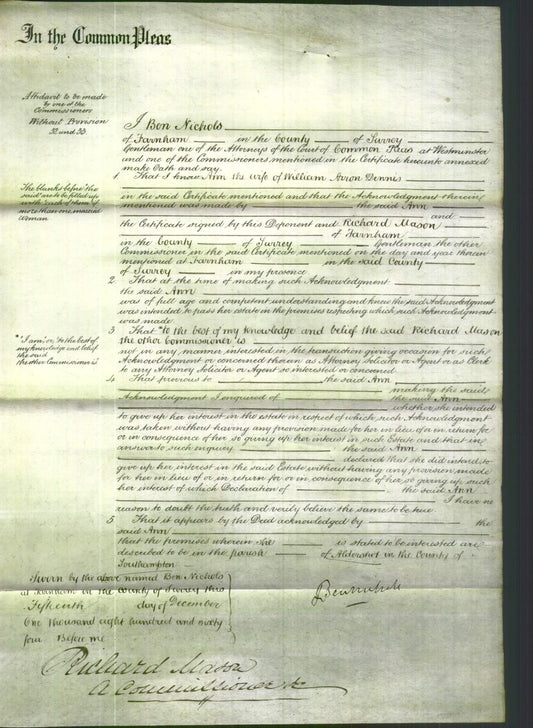 In the Common Pleas
Affidavit to be made
by one of the
Commissioners
Without Provision
32 and 33
I Ben Nichols
of Farnham in the County of Surrey
Gentleman one of the Attorneys of the Court of Common Pleas at Westminster
and one of the Commissioners mentioned in the Certificate hereunto annexed
make Oath and say.
1 That I know Ann the wife of William Dennis
The blanks before "the
said" are to be filled up
with "each of them" if
more than one married
Woman
in the said Certificate mentioned and that the Acknowledgment therein
mentioned was made by the said Ann
and
the Certificate signed by this Deponent and Richard Mason
of Farnham
in the County of Surrey Gentleman the other
Commissioner in the said Certificate mentioned on the day and year therein
mentioned at Farnham in the said County
of Surrey in my presence
2 That at the time of making such Acknowledgment
the said Ann
was of full age and competent understanding and knew the said Acknowledgment
was intended to pass her estate in the premises respecting which such Acknowledgment
was made.
3 That "to the best of my knowledge and belief the said Richard Mason
the other Commissioner is
* I am, or to the best of
my knowledge and belief
the said
the other Commissioner is
not in any manner interested in the transaction giving occasion for such
Acknowledgment or concerned therein as Attorney Solicitor or Agent or as Clerk
to any Attorney Solicitor or Agent so interested or concerned.
4 That previous to the said Ann
making the said
Acknowledgment I enquired of the said Ann
whether she intended
to give up her interest in the estate in respect of which such Acknowledgment
was taken without having any provision made for her in lieu of or in return for
or in consequence of her so giving up her interest in such Estate and that in
answer to such inquiry the said Ann
declared that she did intend to
give up her interest in the said Estate without having any provision made
for her in lieu of or in return for or in consequence of her so giving up such
her interest of which Declaration of the said Ann
I have no
reason to doubt the truth and verily believe the same to be true
5 That it appears by the Deed acknowledged by the
said Ann
that the premises wherein she is stated to be interested are
described to be in the parish of Aldershot in the County of
Southampton
Sworn by the above named Ben Nichols
at Farnham in the County of Surrey this
Fifteenth day of December
One thousand eight hundred and sixty
four Before me
Ben Nichols
Richard Mason
A Commissioner &c